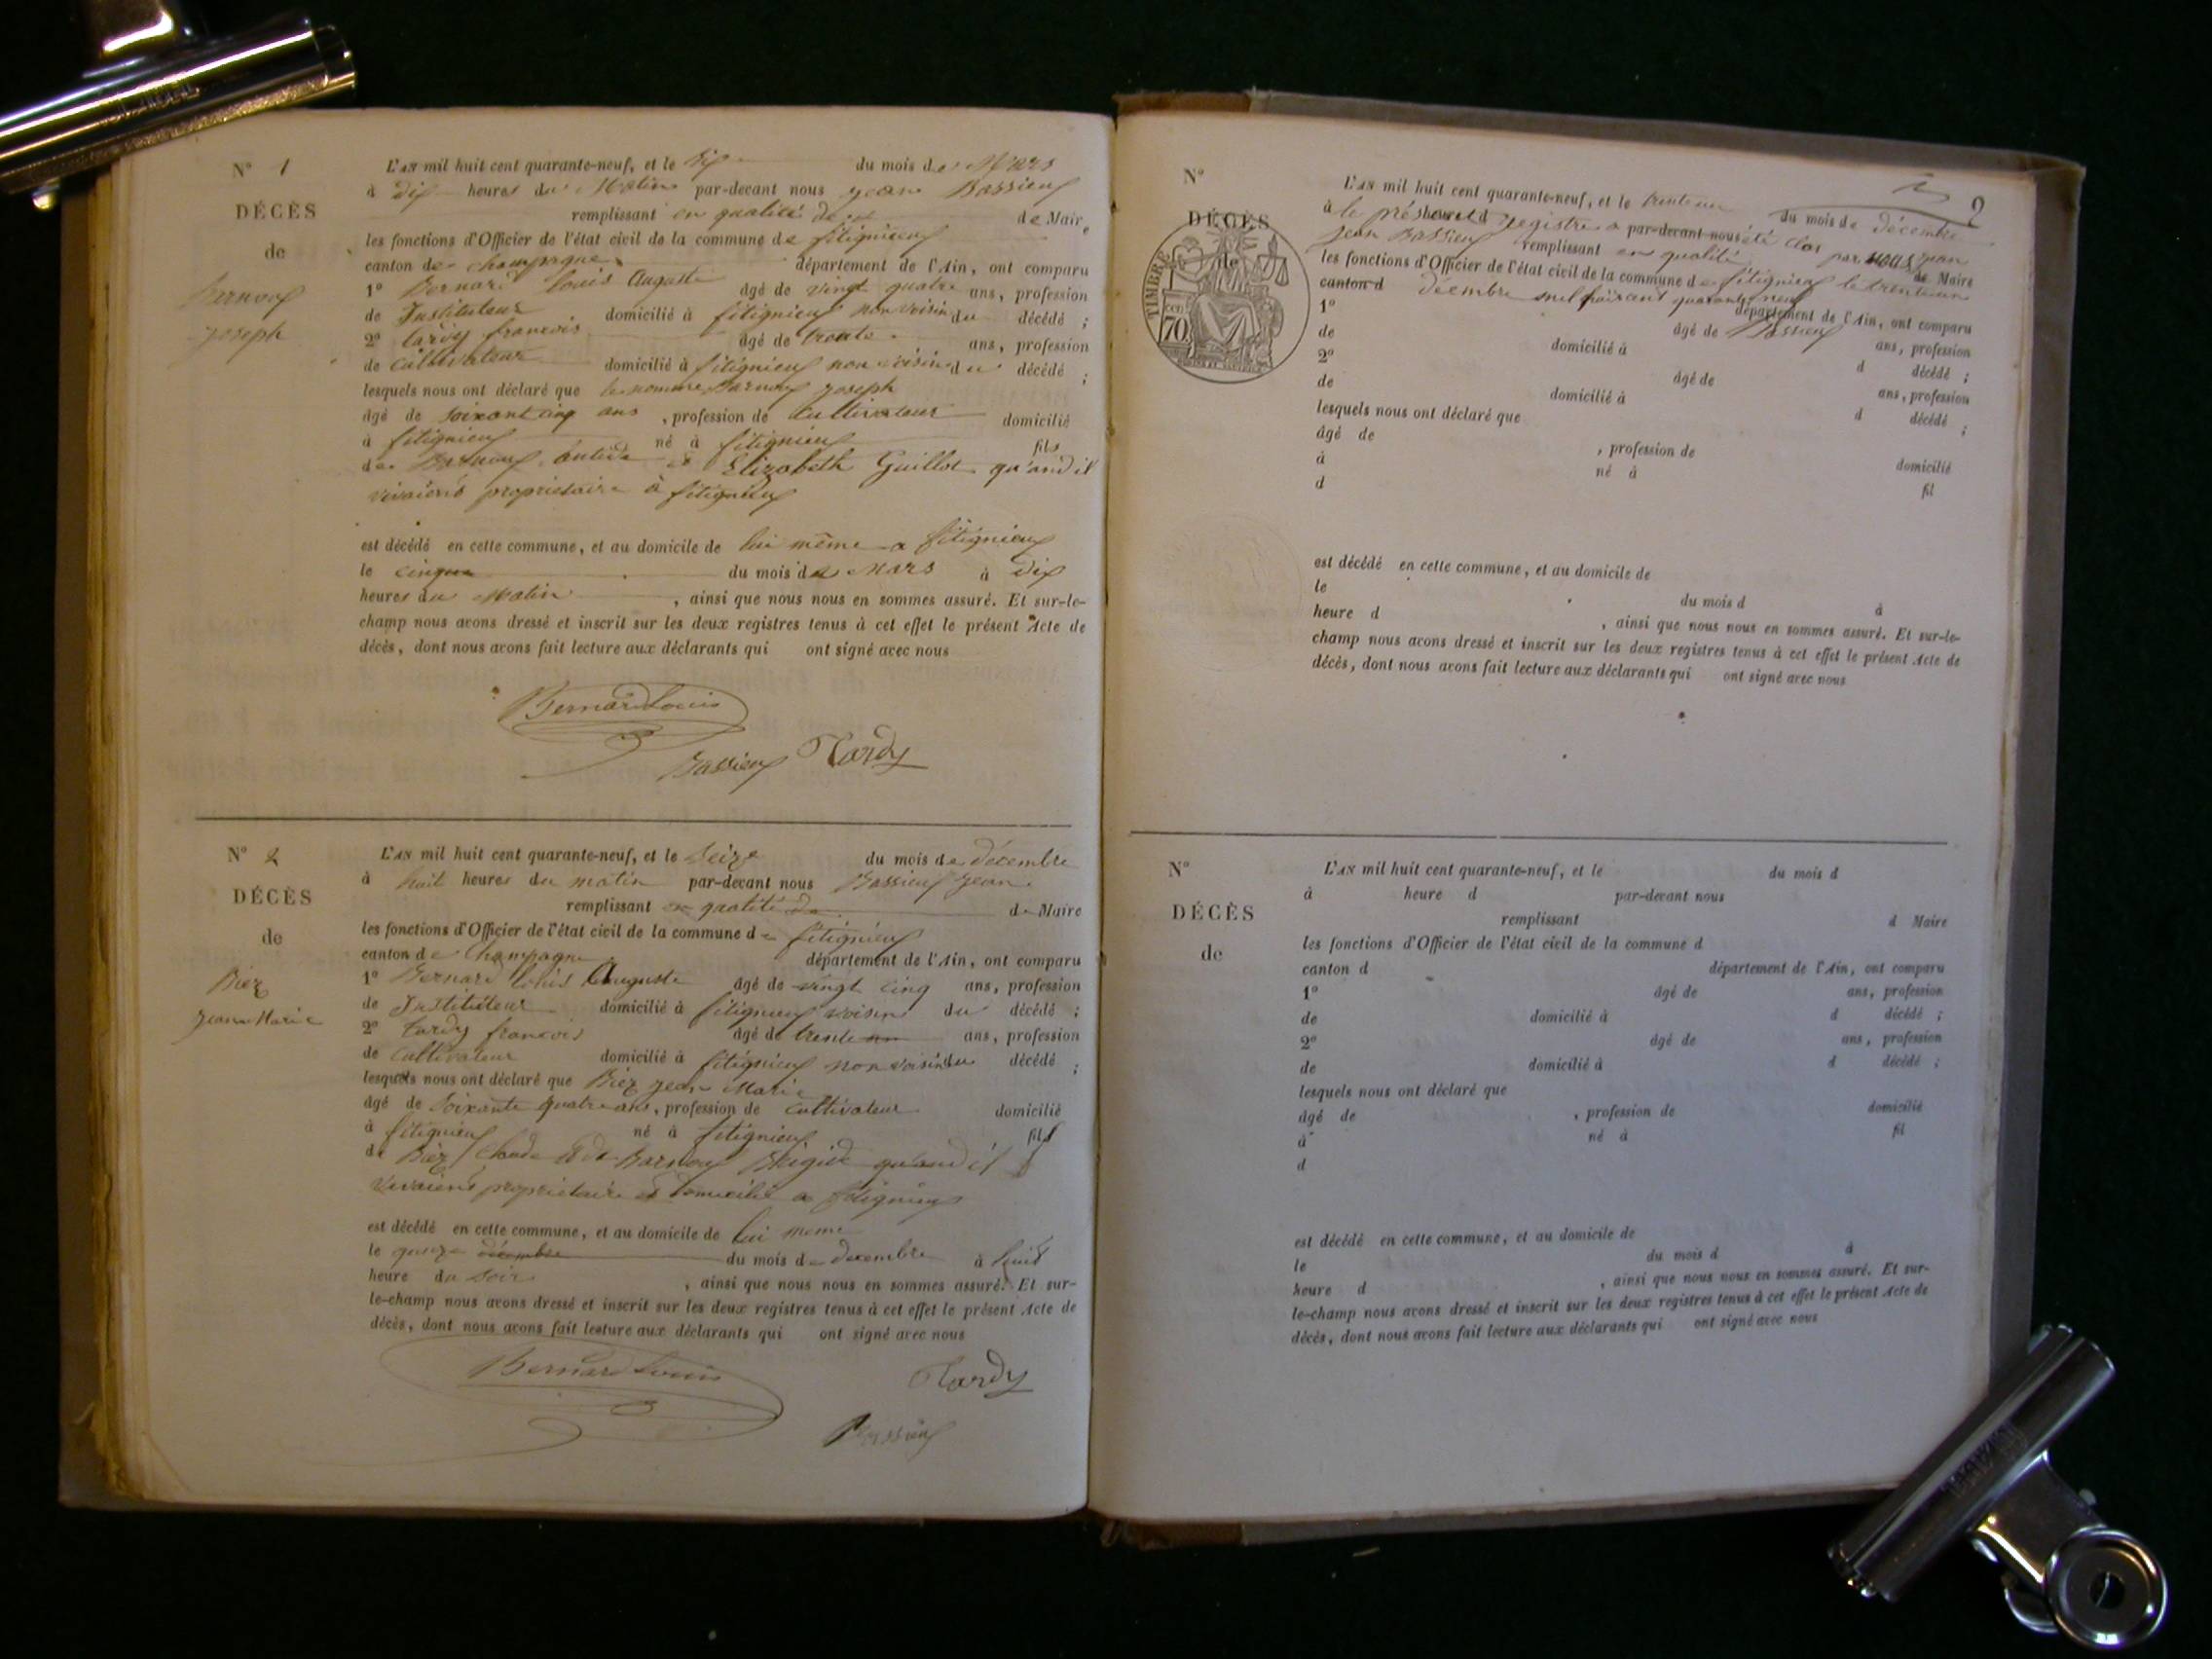 N° 1
DÉCÈS
de
Joseph
L'AN mil huit cent quarante-neuf, et le six du mois de Mars
à dix heures du Matin par-devant nous Jean Bassieux
remplissant en qualité de de Maire
les fonctions d'Officier de l'état civil de la commune de fitignieux
canton de champagne département de l'Ain, ont comparu
1° Bernard Louis Auguste âgé de vingt quatre ans, profession
de Instituteur domicilié à fitignieux non voisin du décédé ;
2° tardy francois âgé de trente ans, profession
de cultivateur domicilié à fitignieux non voisin du décédé ;
lesquels nous ont déclaré que le nommé Barnoux Joseph
âgé de soixant cinq ans , profession de cultivateur domicilié
à fitignieux né à fitignieux fils
de Barnoux et Elizabeth Guillot qu'and il
vivaient proprietaire à fitignieux
est décédé en cette commune, et au domicile de lui même a fitignieux
le cinque du mois de Mars à dix
heures du Matin , ainsi que nous nous en sommes assuré. Et sur-le-
champ nous avons dressé et inscrit sur les deux registres tenus à cet effet le présent Acte de
décès, dont nous avons fait lecture aux déclarants qui ont signé avec nous
Bernard Louis
Bassieux Tardy
N° 2
DÉCÈS
de
Biez
Jean Marie
L'AN mil huit cent quarante-neuf, et le seize du mois de décembre
à huit heures du matin par-devant nous Bassieux Jean
remplissant en qualité de de Maire
les fonctions d'Officier de l'état civil de la commune de fitignieux
canton de Champagne département de l'Ain, ont comparu
1° Bernard Louis Auguste âgé de vingt cinq ans, profession
de Instituteur domicilié à fitignieux voisin du décédé ;
2° tardy francois âgé de trente un ans, profession
de cultivateur domicilié à fitignieux non voisin du décédé ;
lesquels nous ont déclaré que Biez Jean Marie
âgé de soixante quatre ans, profession de cultivateur domicilié
à fitignieux né à fitignieux fils
de Biez Claude et de Barnoux qu'and il
vivaient proprietaire et domicilié a fitignieux
est décédé en cette commune, et au domicile de lui meme
le quinze décembre du mois de decembre à huit
heure du soir , ainsi que nous nous en sommes assuré. Et sur-
le-champ nous avons dressé et inscrit sur les deux registres tenus à cet effet le présent Acte de
décès, dont nous avons fait lecture aux déclarants qui ont signé avec nous
Bernard Louis Tardy
Bassieux
2
N°
DÉCÈS
de
TIMBRE
70
L'AN mil huit cent quarante-neuf, et le trente un du mois de décembre
à le présent heure d registre a par-devant nous été clos par nous
Jean Bassieux remplissant en qualité de Maire
les fonctions d'Officier de l'état civil de la commune de fitignieux le trente un
canton d décembre mil huit cent quarante neuf
département de l'Ain, ont comparu
1° âgé de Bassieux ans, profession
de domicilié à d décédé ;
2° âgé de ans, profession
de domicilié à d décédé ;
lesquels nous ont déclaré que
âgé de , profession de domicilié
à né à fil
d
est décédé en cette commune, et au domicile de
le du mois d à
heure d , ainsi que nous nous en sommes assuré. Et sur-le-
champ nous avons dressé et inscrit sur les deux registres tenus à cet effet le présent Acte de
décès, dont nous avons fait lecture aux déclarants qui ont signé avec nous
N°
DÉCÈS
de
L'AN mil huit cent quarante-neuf, et le du mois d
à heure d par-devant nous
remplissant d Maire
les fonctions d'Officier de l'état civil de la commune d
canton d département de l'Ain, ont comparu
1° âgé de ans, profession
de domicilié à d décédé ;
2° âgé de ans, profession
de domicilié à d décédé ;
lesquels nous ont déclaré que
âgé de , profession de domicilié
à né à fil
d
est décédé en cette commune, et au domicile de
le du mois d à
heure d , ainsi que nous nous en sommes assuré. Et sur-
le-champ nous avons dressé et inscrit sur les deux registres tenus à cet effet le présent Acte de
décès, dont nous avons fait lecture aux déclarants qui ont signé avec nous